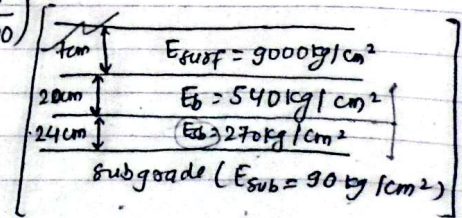 10)
7cm E_surf = 9000kg/cm²
20cm E_b = 540kg/cm²
24cm E_sb = 270kg/cm²
subgrade (E_sub = 90 kg/cm²)